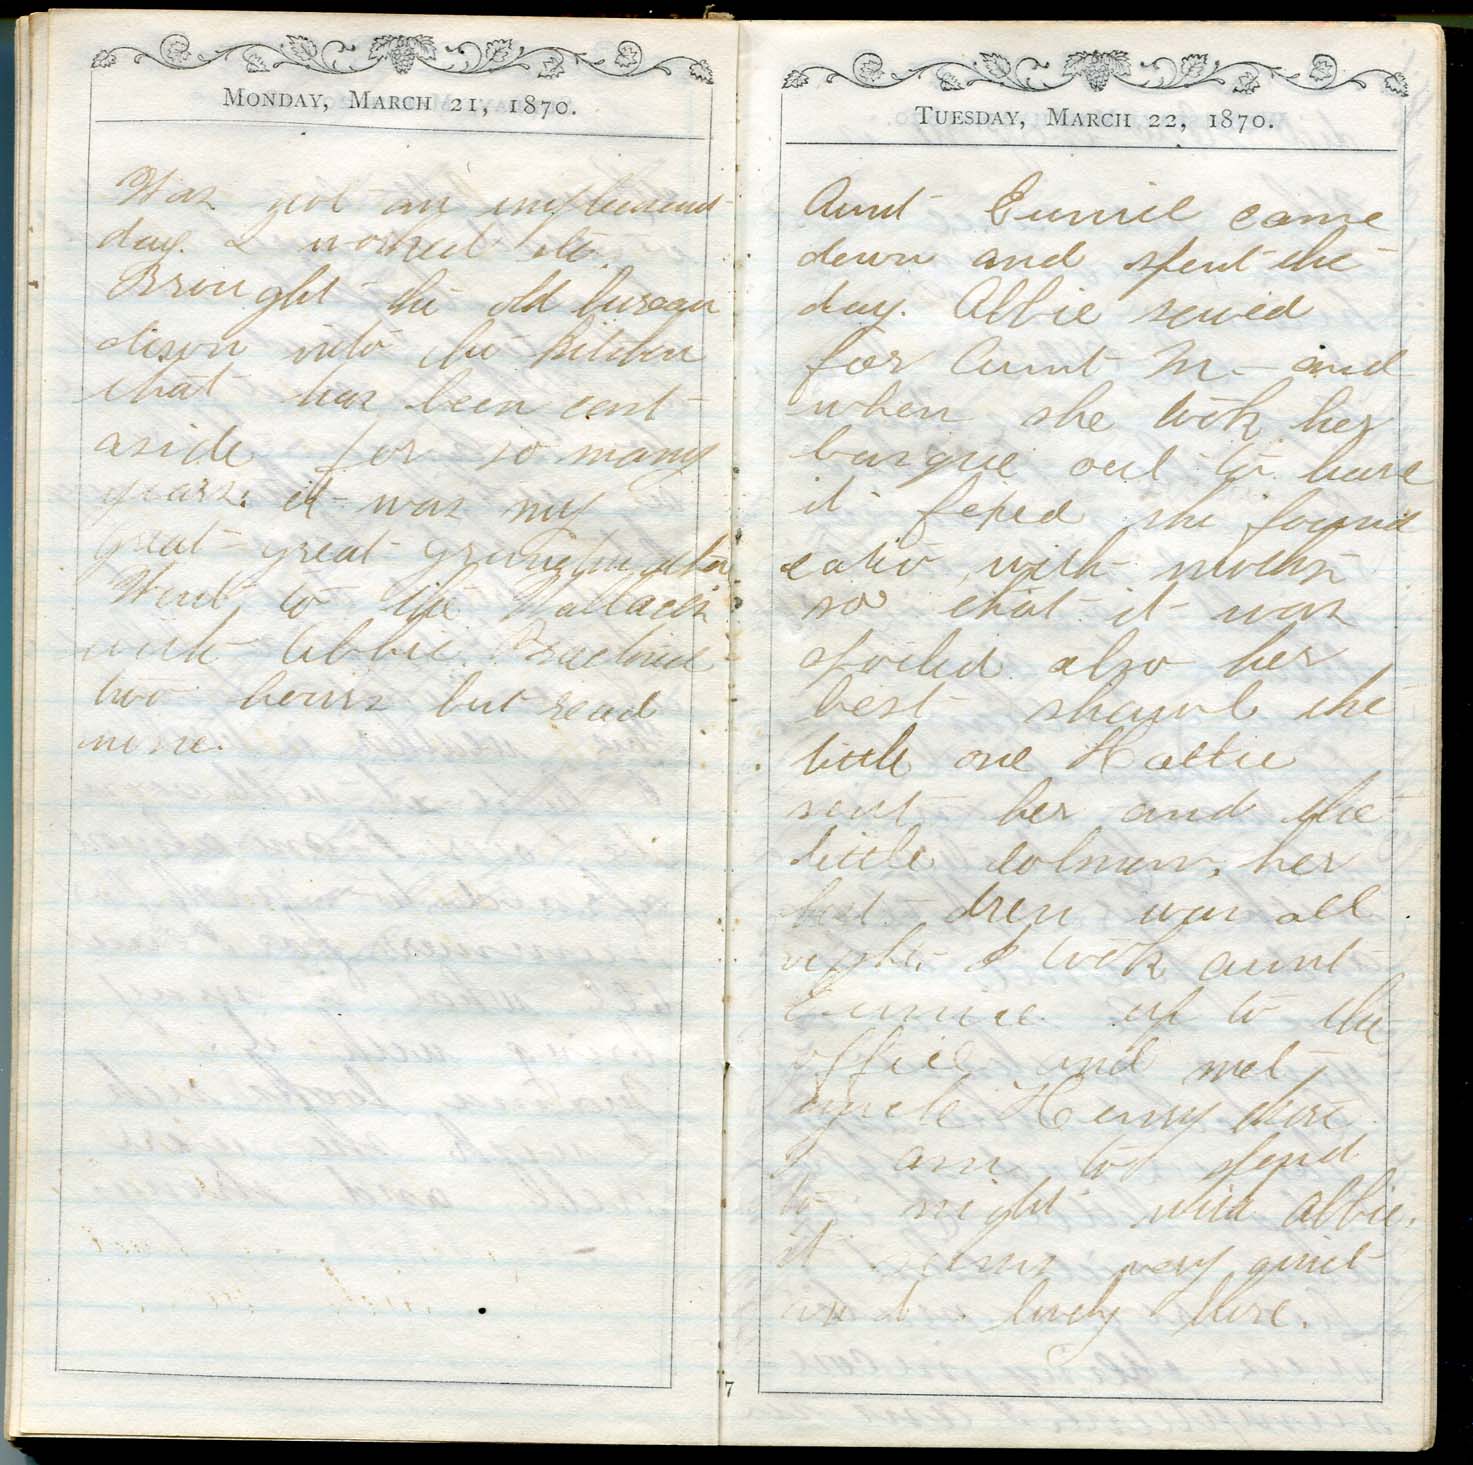 MONDAY, MARCH 21, 1870.
Was not an unpleasant
day. I worked etc
Brought the old bureau
down into the kitchen
that has been cast
aside for so many
years. it was my
great great grandmother
Went to the Wallacks
with Abbie. Practiced
two hours but read
none.
TUESDAY, MARCH 22, 1870.
Aunt Eunice came
down and spent the
day. Abbie sewed
for Aunt M. and
when she took her
basque out to have
it fixed she found
eaten with moths
so that it was
spoiled also her
best shawl the
little one Hattie
sent her and the
little dolman, her
best dress was all
right. I took aunt
Eunice up to the
office and met
uncle Henry there
I am to spend
to night with Abbie.
it seems very quiet
and lovely here.
7